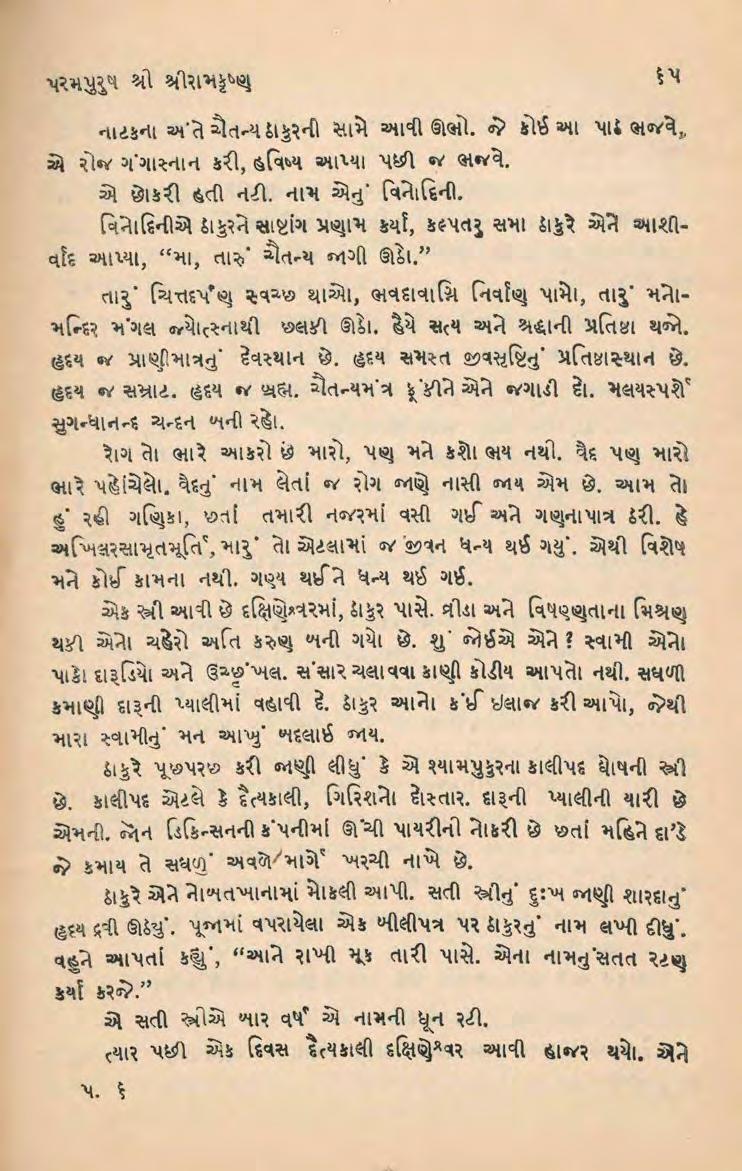 પરમપુરુષ શ્રી શ્રીરામકૃષ્ણ ૬૫
નાટકના અંતે ચૈતન્ય ઠાકુરની સામે આવી ઊભો. જે કોઈ આ પાઠ ભજવે,
એ રોજ ગંગાસ્નાન કરી, હવિષ્ય આપ્યા પછી જ ભજવે.
એ છોકરી હતી નટી. નામ એનું વિનોદિની.
વિનોદિનીએ ઠાકુરને સાષ્ટાંગ પ્રણામ કર્યાં, કલ્પતરુ સમા ઠાકુરે એને આશી-
ર્વાદ આપ્યા, “મા, તારું ચૈતન્ય જાગી ઊઠો.”
તારું ચિત્તદર્પણ સ્વચ્છ થાઓ, ભવદાવાગ્નિ નિર્વાણ પામો, તારું મનો-
મન્દિર મંગલ જ્યોત્સ્નાથી છલકી ઊઠો. હૈયે સત્ય અને શ્રદ્ધાની પ્રતિષ્ઠા થજો.
હૃદય જ પ્રાણીમાત્રનું દેવસ્થાન છે. હૃદય સમસ્ત જીવસૃષ્ટિનું પ્રતિષ્ઠાસ્થાન છે.
હૃદય જ સમ્રાટ. હૃદય જ બ્રહ્મ. ચૈતન્યમંત્ર ફૂંકીને એને જગાડી દો. મલયસ્પર્શે
સુગન્ધાનન્દ ચન્દન બની રહો.
રોગ તો ભારે આકરો છે મારો, પણ મને કશો ભય નથી. વૈદ પણ મારો
ભારે પહોંચેલો. વૈદનું નામ લેતાં જ રોગ જાણે નાસી જાય એમ છે. આમ તો
હું રહી ગણિકા, છતાં તમારી નજરમાં વસી ગઈ અને ગણનાપાત્ર ઠરી. હે
અખિલરસામૃતમૂર્તિ, મારું તો એટલામાં જ જીવન ધન્ય થઈ ગયું. એથી વિશેષ
મને કોઈ કામના નથી. ગણ્ય થઈને ધન્ય થઈ ગઈ.
એક સ્ત્રી આવી છે દક્ષિણેશ્વરમાં, ઠાકુર પાસે. વ્રીડા અને વિષણ્ણતાના મિશ્રણ
થકી એનો ચહેરો અતિ કરુણ બની ગયો છે. શું જોઈએ એને? સ્વામી એનો
પાકો દારૂડિયો અને ઉચ્છૃંખલ. સંસાર ચલાવવા કાણી કોડીય આપતો નથી. સઘળી
કમાણી દારૂની પ્યાલીમાં વહાવી દે. ઠાકુર આનો કંઈ ઇલાજ કરી આપો, જેથી
મારા સ્વામીનું મન આખું બદલાઈ જાય.
ઠાકુરે પૂછપરછ કરી જાણી લીધું કે એ શ્યામપુકુરના કાલીપદ ઘોષની સ્ત્રી
છે. કાલીપદ એટલે કે દૈત્યકાલી, ગિરિશનો દોસ્તાર. દારૂની પ્યાલીની યારી છે
એમની. જોન ડિકિન્સનની કંપનીમાં ઊંચી પાયરીની નોકરી છે છતાં મહિને દા'ડે
જે કમાય તે સઘળું અવળે માર્ગે ખરચી નાખે છે.
ઠાકુરે એને નોબતખાનામાં મોકલી આપી. સતી સ્ત્રીનું દુઃખ જાણી શારદાનું
હૃદય દ્રવી ઊઠ્યું. પૂજામાં વપરાયેલા એક બીલીપત્ર પર ઠાકુરનું નામ લખી દીધું.
વહુને આપતાં કહ્યું, “આને રાખી મૂક તારી પાસે. એના નામનું સતત રટણ
કર્યા કરજે.”
એ સતી સ્ત્રીએ બાર વર્ષ એ નામની ધૂન રટી.
ત્યાર પછી એક દિવસ દૈત્યકાલી દક્ષિણેશ્વર આવી હાજર થયો. એને
પ. ૬